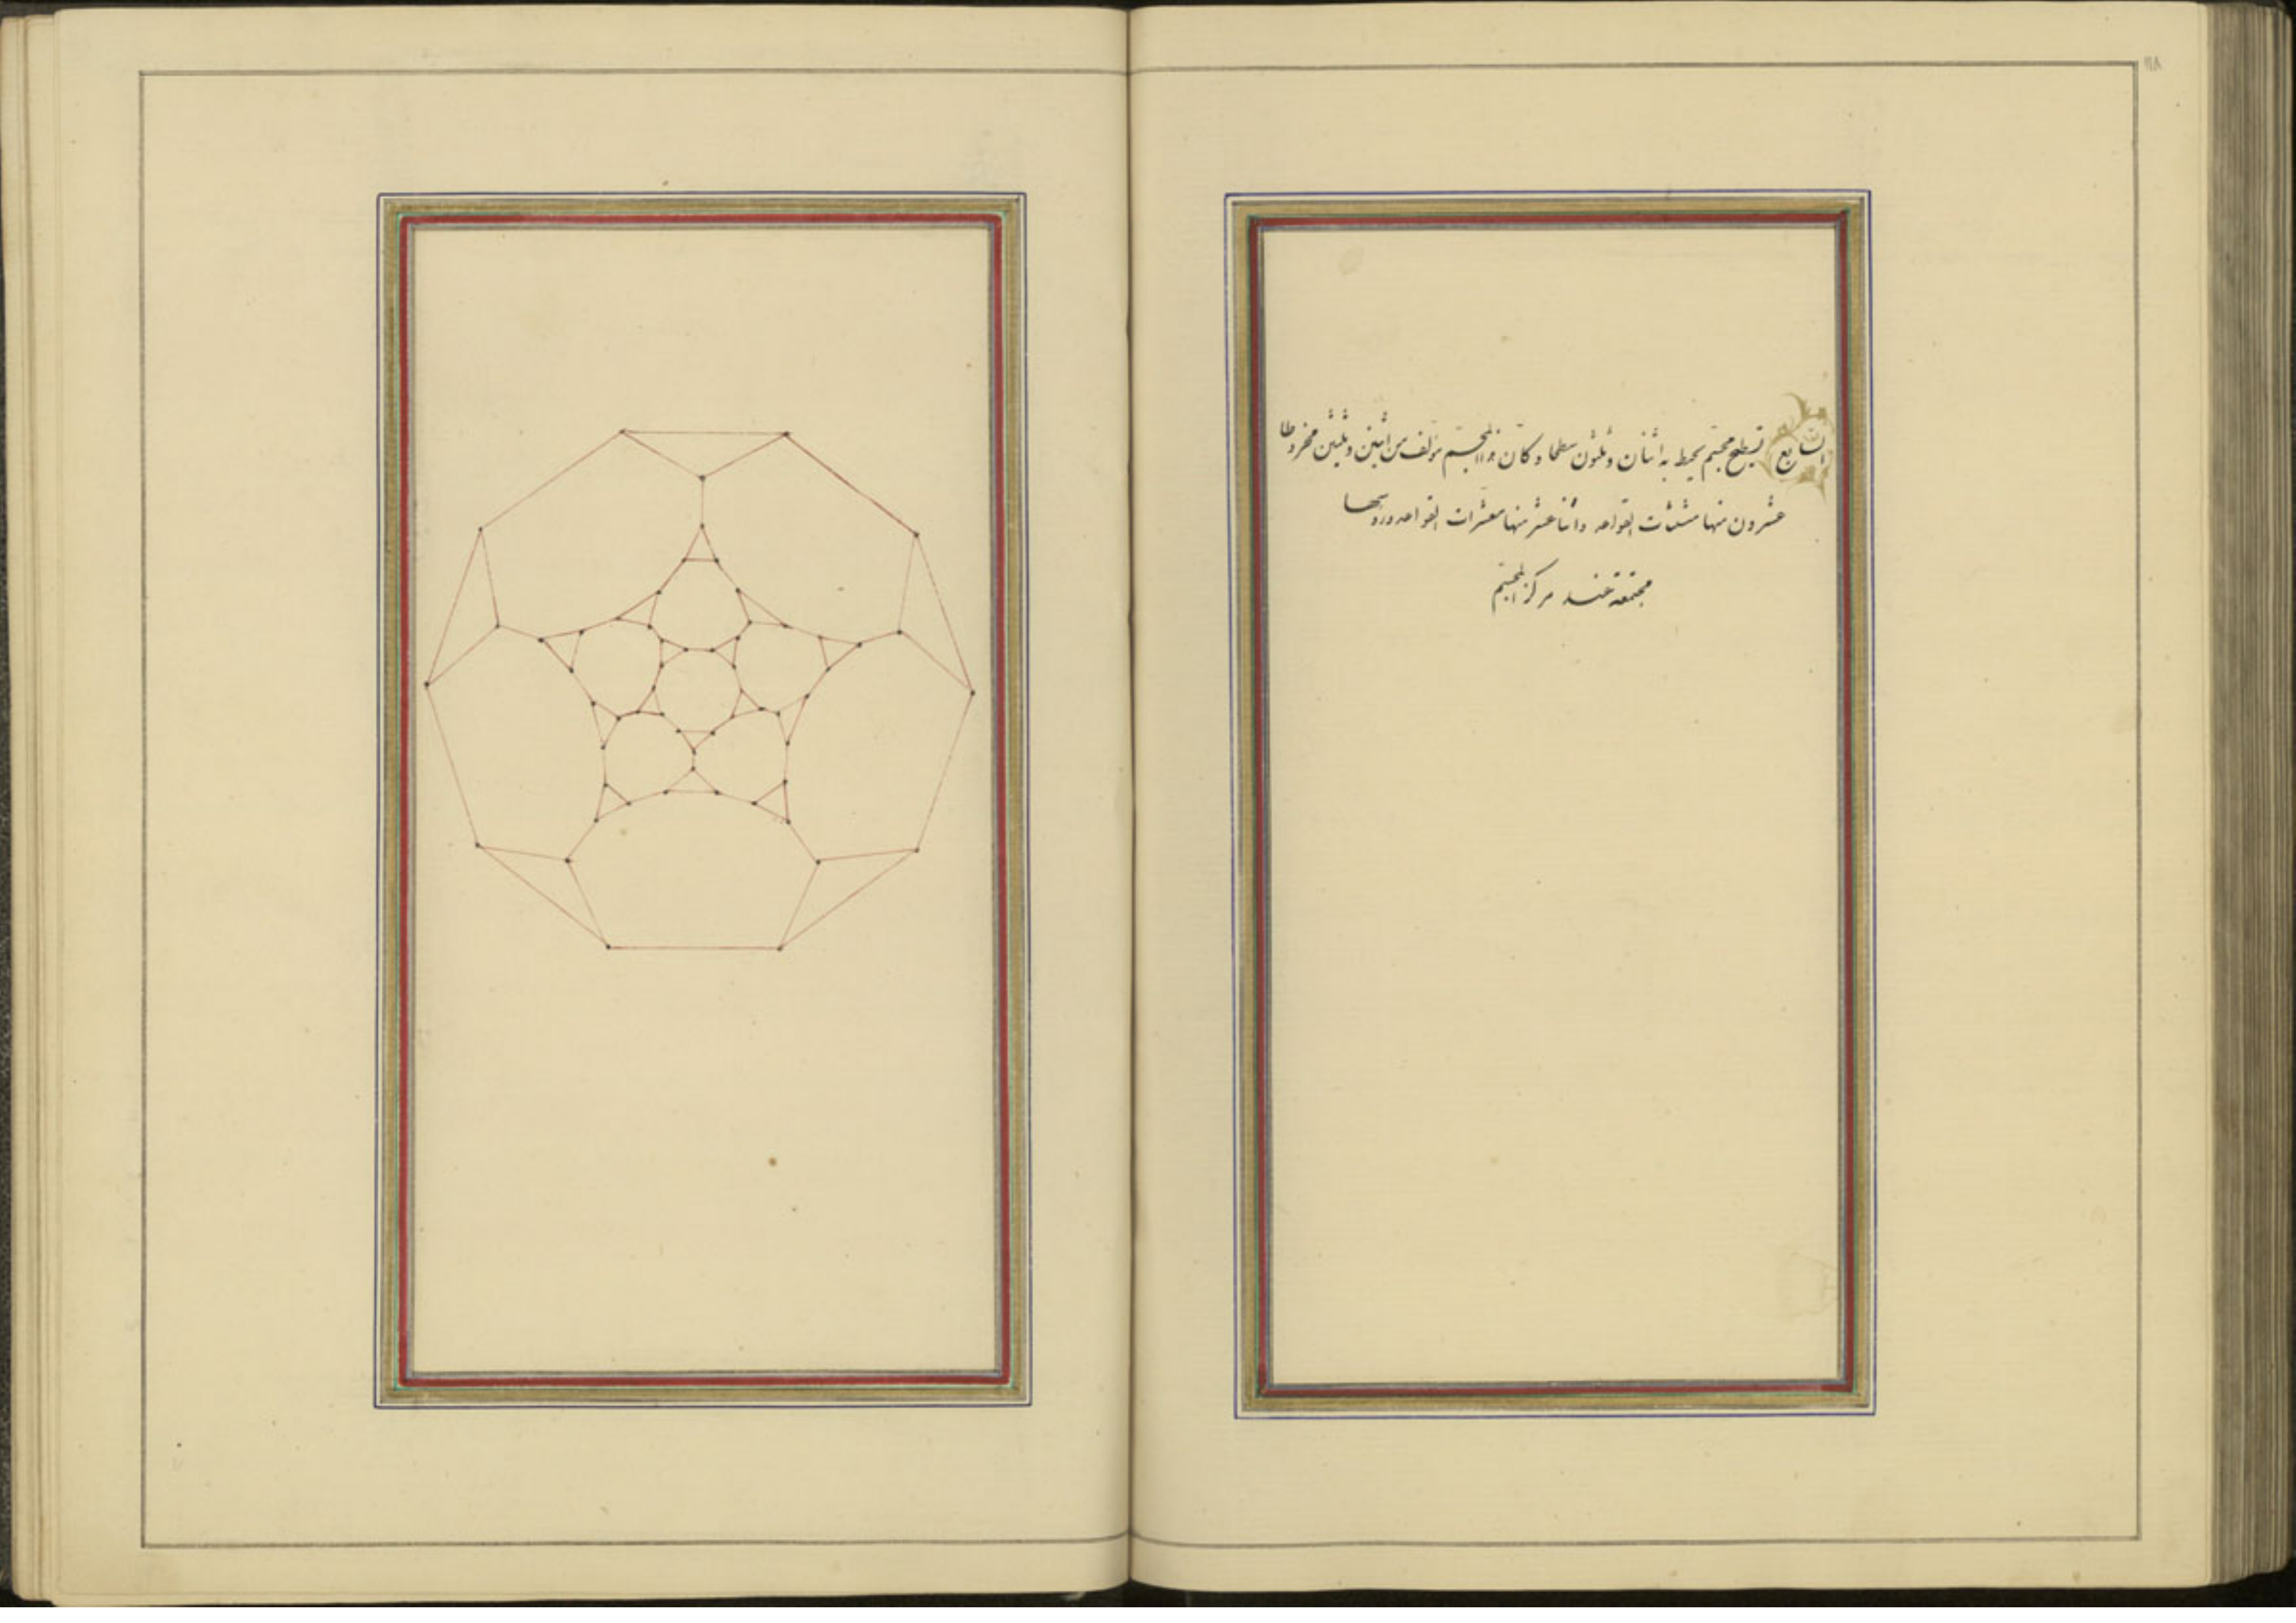 السابع تسطيح مجسم يحيط به اثنان وثلثون سطحا وكان هذا المجسم مؤلف من اثنين وثلثين مخروطا
عشرون منها مثلثات القواعد واثنا عشر منها معشرات القواعد ورؤسها
مجتمعة عند مركز المجسم